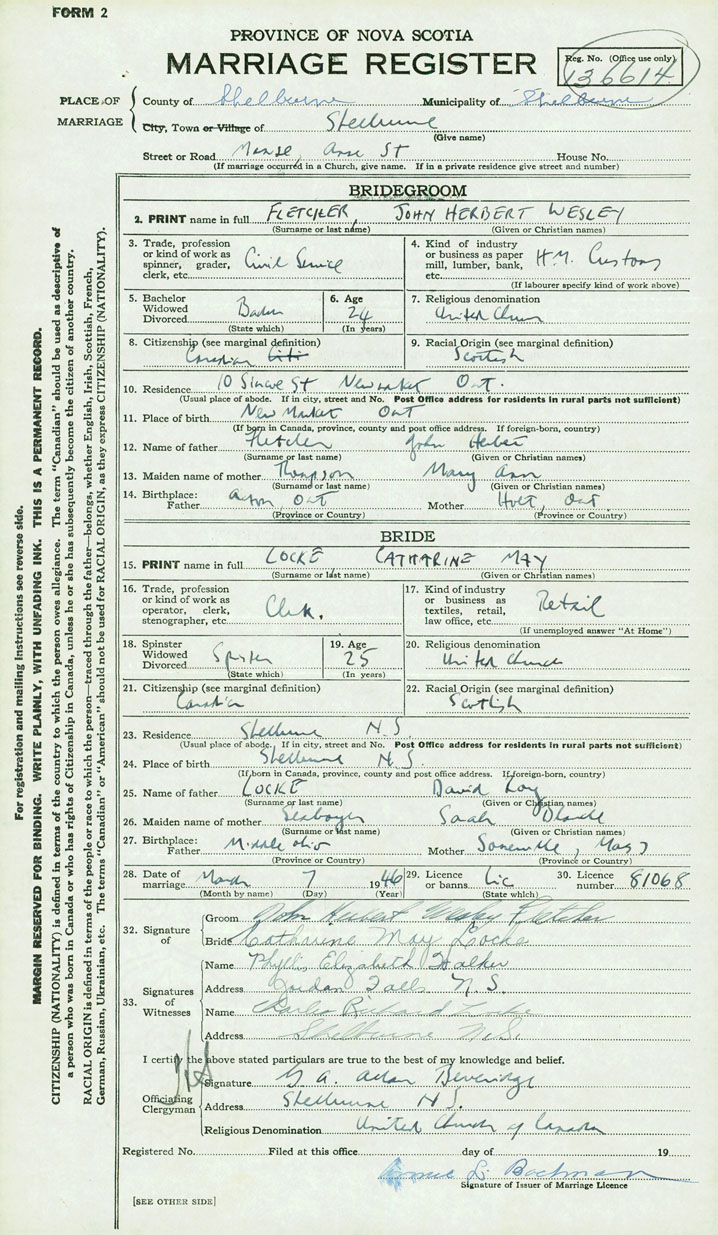 FORM 2
PROVINCE OF NOVA SCOTIA
MARRIAGE REGISTER
Reg. No. (Office use only)
136614
PLACE OF MARRIAGE
County of Shelburne Municipality of Shelburne
City, Town or Village of Shelburne
(Give name)
Street or Road Manse, Ann St House No.
(If marriage occurred in a Church, give name. If in a private residence give street and number)
BRIDEGROOM
2. PRINT name in full FLETCHER, JOHN HERBERT WESLEY
(Surname or last name) (Given or Christian names)
3. Trade, profession or kind of work as spinner, grader, clerk, etc. Civil Service
4. Kind of industry or business as paper mill, lumber, bank, etc. H.M. Customs
(If labourer specify kind of work above)
5. Bachelor Widowed Divorced
(State which)
6. Age 24
(In years)
7. Religious denomination United Church
8. Citizenship (see marginal definition) Canadian
9. Racial Origin (see marginal definition) Scottish
10. Residence 10 St Newmarket Ont.
(Usual place of abode. If in city, street and No. Post Office address for residents in rural parts not sufficient)
11. Place of birth New Market Ont
(If born in Canada, province, county and post office address. If foreign-born, country)
12. Name of father Fletcher John
(Surname or last name) (Given or Christian names)
13. Maiden name of mother Thompson Mary Ann
(Surname or last name) (Given or Christian names)
14. Birthplace: Father Acton, Ont Mother Holt, Ont
(Province or Country) (Province or Country)
BRIDE
15. PRINT name in full LOCKE CATHARINE MAY
(Surname or last name) (Given or Christian names)
16. Trade, profession or kind of work as operator, clerk, stenographer, etc. Clerk.
17. Kind of industry or business as textiles, retail, law office, etc. Retail
(If unemployed answer "At Home")
18. Spinster Widowed Divorced Spinster
(State which)
19. Age 25
(In years)
20. Religious denomination United Church
21. Citizenship (see marginal definition) Canadian
22. Racial Origin (see marginal definition) Scottish
23. Residence Shelburne N.S.
(Usual place of abode. If in city, street and No. Post Office address for residents in rural parts not sufficient)
24. Place of birth Shelburne N.S.
(If born in Canada, province, county and post office address. If foreign-born, country)
25. Name of father LOCKE David Roy
(Surname or last name) (Given or Christian names)
26. Maiden name of mother Seaboyer Sarah
(Surname or last name) (Given or Christian names)
27. Birthplace: Father Mother Somerville, Mass
(Province or Country) (Province or Country)
28. Date of marriage March 7 1946
(Month by name) (Day) (Year)
29. Licence or banns Lic
(State which)
30. Licence number 81068
32. Signature of
Groom John Herbert Wesley Fletcher
Bride Catharine May Locke
33. Signatures of Witnesses
Name Phyllis Elizabeth Walker
Address Jordan Falls N.S.
Name
Address Shelburne N.S.
I certify the above stated particulars are true to the best of my knowledge and belief.
Officiating Clergyman
Signature G. A. Allan Beveridge
Address Shelburne N.S.
Religious Denomination United Church of Canada
Registered No. Filed at this office day of 19
L. Bochman
Signature of Issuer of Marriage Licence
[SEE OTHER SIDE]
For registration and mailing instructions see reverse side.
MARGIN RESERVED FOR BINDING. WRITE PLAINLY, WITH UNFADING INK. THIS IS A PERMANENT RECORD.
CITIZENSHIP (NATIONALITY) is defined in terms of the country to which the person owes allegiance. The term "Canadian" should be used as descriptive of
a person who was born in Canada or who has rights of Citizenship in Canada, unless he or she has subsequently become the citizen of another country.
RACIAL ORIGIN is defined in terms of the people or race to which the person—traced through the father—belongs, whether English, Irish, Scottish, French,
German, Russian, Ukrainian, etc. The terms "Canadian" or "American" should not be used for RACIAL ORIGIN, as they express CITIZENSHIP (NATIONALITY).